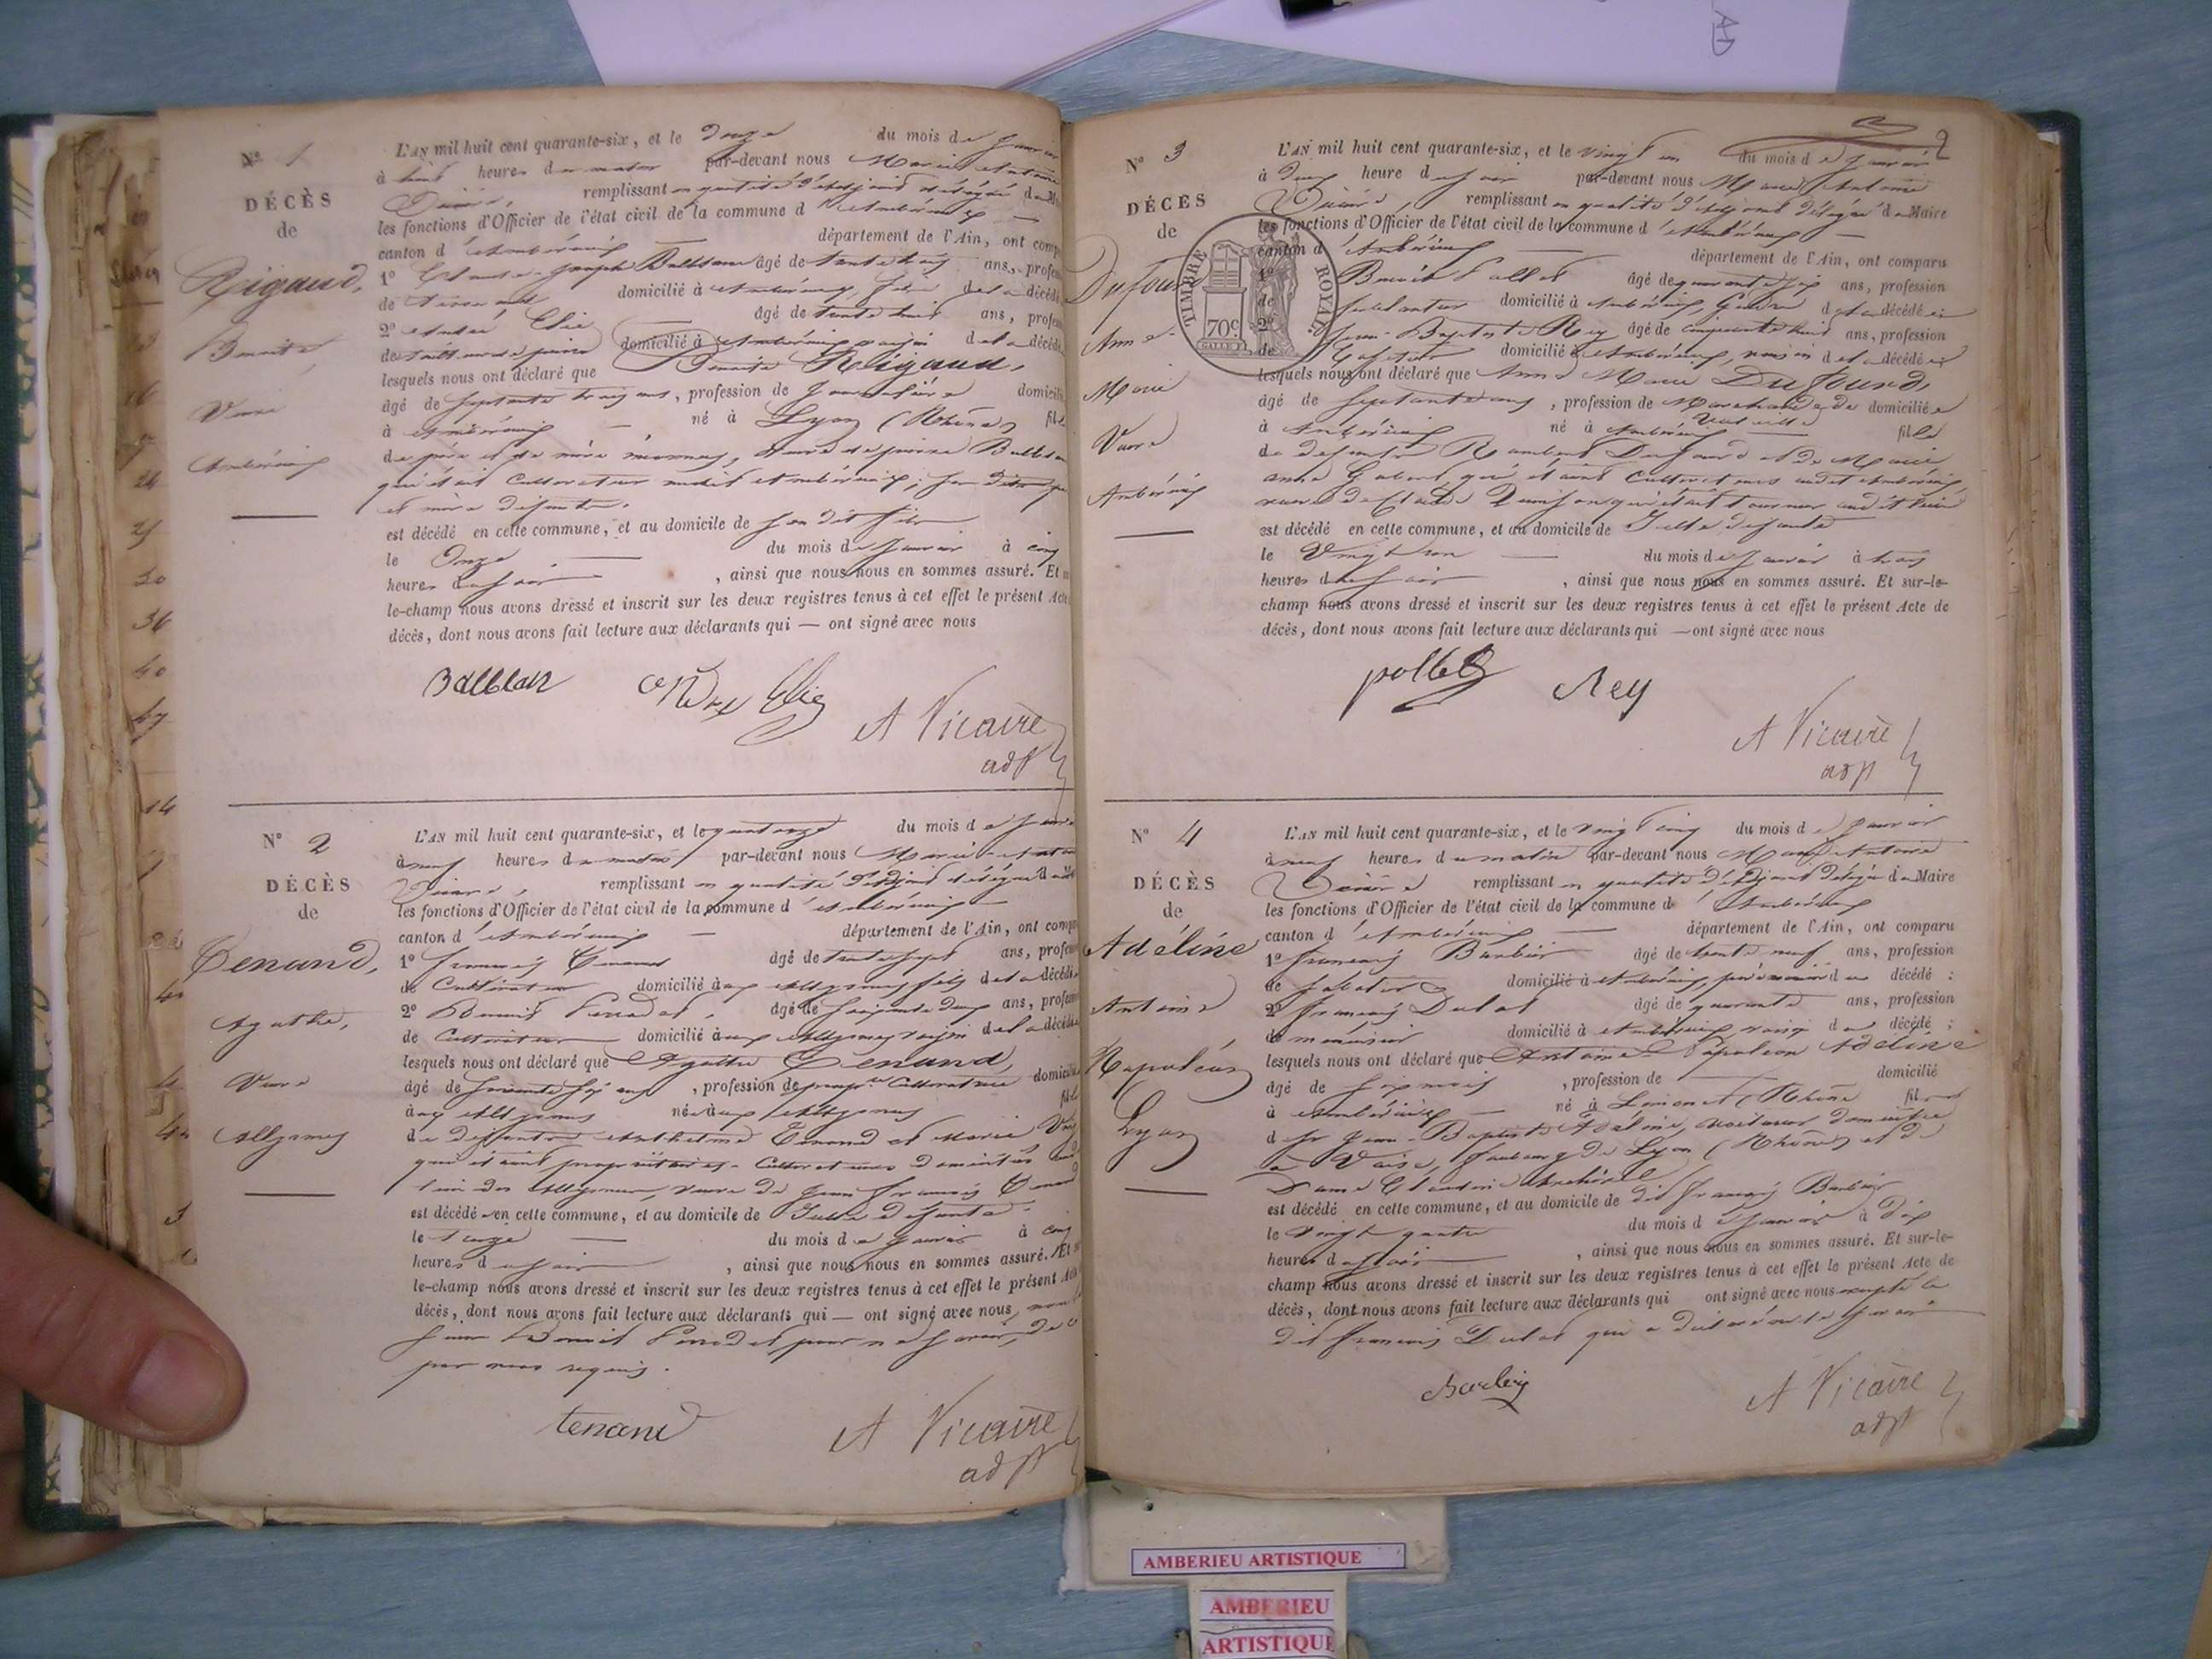 N° 1
DÉCÈS
de
Rigaud,
Benoite,
Veuve
Ambérieux
L'AN mil huit cent quarante-six, et le douze du mois de Janvier
à huit heures du matin par-devant nous Marie Antoine
Vicaire, remplissant en qualité d'adjoint délégué du
les fonctions d'Officier de l'état civil de la commune d'Ambérieux
canton d'Ambérieux département de l'Ain, ont comp
1° Joseph Balbland âgé de trente ans, profes
de domicilié à Ambérieux, fils de la décédée
2° André Élie âgé de trente huit ans, profes
de domicilié à Ambérieux voisin de la décédée
lesquels nous ont déclaré que Benoite Rigaud,
âgé de septante trois ans, profession de Journalière domicili
à Ambérieux né à Lyon (Rhône) fille
de père et de mère inconnus, veuve de
qui était Cultivateur audit Ambérieux; son dit
et mère défunte.
est décédé en cette commune, et au domicile de son dit fils
le onze du mois de Janvier à cinq
heures du soir, ainsi que nous nous en sommes assuré. Et
le-champ nous avons dressé et inscrit sur les deux registres tenus à cet effet le présent Acte
décès, dont nous avons fait lecture aux déclarants qui — ont signé avec nous
Balblan andre Elie
A Vicaire
adjt
N° 2
DÉCÈS
de
Tenand,
Agathe,
Veuve
Allymes
L'AN mil huit cent quarante-six, et le quatorze du mois de Janvier
à neuf heures du matin par-devant nous Marie-Antoine
Vicaire, remplissant en qualité d'adjoint délégué
les fonctions d'Officier de l'état civil de la commune d'Ambérieux
canton d'Ambérieux département de l'Ain, ont comp
1° François Tenand âgé de trente sept ans, profess
de Cultivateur domicilié aux Allymes fils de la décédée
2° Benoit âgé de soixante deux ans, profess
de Cultivateur domicilié aux Allymes voisin de la décédée
lesquels nous ont déclaré que Agathe Tenand,
âgé de soixante six ans, profession de Cultivatrice domicili
aux Allymes née aux Allymes fille
de défunts Anthelme Tenand et Marie
qui étaient propriétaires-Cultivateurs domiciliés
lieu des Allymes, veuve de Jean François Tenand
est décédé en cette commune, et au domicile de ladite défunte
le treize du mois de Janvier à cinq
heures du soir, ainsi que nous nous en sommes assuré. Et
le-champ nous avons dressé et inscrit sur les deux registres tenus à cet effet le présent Acte
décès, dont nous avons fait lecture aux déclarants qui — ont signé avec nous, non
Benoit pour ne savoir, de ce
par nous requis.
tenand A Vicaire
adjt
2
N° 3
DÉCÈS
de
Dufourd
Anne
Marie
Veuve
Ambérieux
TIMBRE ROYAL
70c
L'AN mil huit cent quarante-six, et le vingt un du mois de Janvier
à deux heure du soir par-devant nous Marie Antoine
Vicaire, remplissant en qualité d'adjoint délégué du Maire
les fonctions d'Officier de l'état civil de la commune d'Ambérieux
canton d'Ambérieux département de l'Ain, ont comparu
1° Benoit Pollet âgé de quarante six ans, profession
de domicilié à Ambérieux, Gendre de la décédée
2° Jean-Baptiste Rey âgé de cinquante huit ans, profession
de domicilié à Ambérieux, voisin de la décédée
lesquels nous ont déclaré que Anne Marie Dufourd,
âgé de septante ans, profession de Marchande domiciliée
à Ambérieux né à Ambérieux fille
de défunts Rambert Dufourd et de Marie
anne qui étaient Cultivateurs audit Ambérieux,
veuve de Claude qui était audit lieu
est décédé en cette commune, et au domicile de ladite défunte
le Vingt un du mois de Janvier à
heures du soir, ainsi que nous nous en sommes assuré. Et sur-le-
champ nous avons dressé et inscrit sur les deux registres tenus à cet effet le présent Acte de
décès, dont nous avons fait lecture aux déclarants qui — ont signé avec nous
pollet Rey
A Vicaire
adjt
N° 4
DÉCÈS
de
Adéline
Antoine
Napoléon
Lyon
L'AN mil huit cent quarante-six, et le vingt cinq du mois de Janvier
à neuf heures du matin par-devant nous Marie Antoine
Vicaire remplissant en qualité d'adjoint délégué du Maire
les fonctions d'Officier de l'état civil de la commune d'Ambérieux
canton d'Ambérieux département de l'Ain, ont comparu
1° François Barbier âgé de trente neuf ans, profession
de sabotier domicilié à Ambérieux, père nourricier du décédé :
2° François Dulat âgé de quarante ans, profession
de menuisier domicilié à Ambérieux, voisin du décédé ;
lesquels nous ont déclaré que Antoine Napoléon Adéline
âgé de six mois, profession de domicilié
à Ambérieux né à Limonest (Rhône) fils
de Sr Jean-Baptiste Adéline, voiturier domicilié
à Vaise, faubourg de Lyon (Rhône) et de
Dame Claudine
est décédé en cette commune, et au domicile de dit François Barbier
le vingt quatre du mois de Janvier à dix
heures du soir, ainsi que nous nous en sommes assuré. Et sur-le-
champ nous avons dressé et inscrit sur les deux registres tenus à cet effet le présent Acte de
décès, dont nous avons fait lecture aux déclarants qui ont signé avec nous excepté le
dit François Dulat qui a déclaré ne le savoir
Barbier
A Vicaire
adjt
AMBERIEU ARTISTIQUE
AMBERIEU
ARTISTIQUE